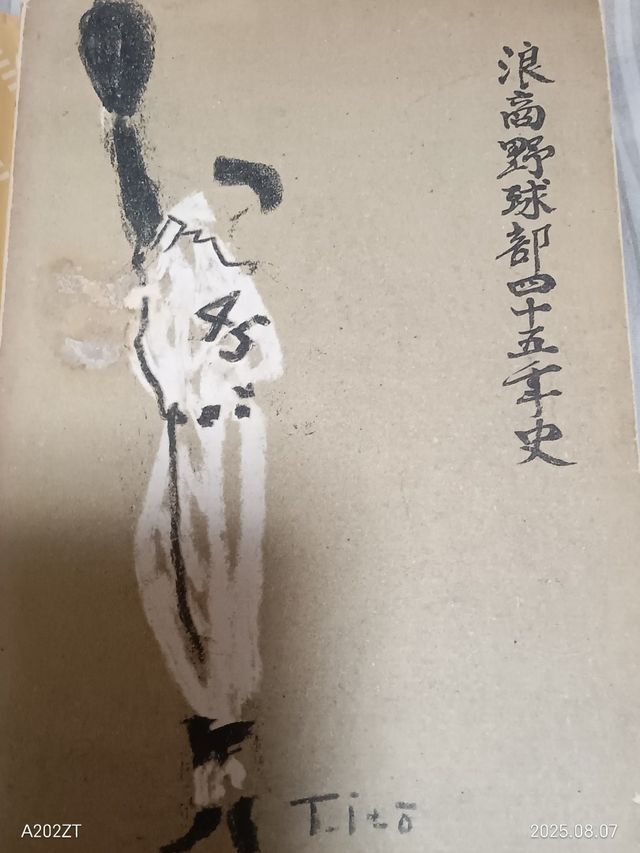 浪商野球部四十五年史
T.itō
A202ZT
2025.08.07